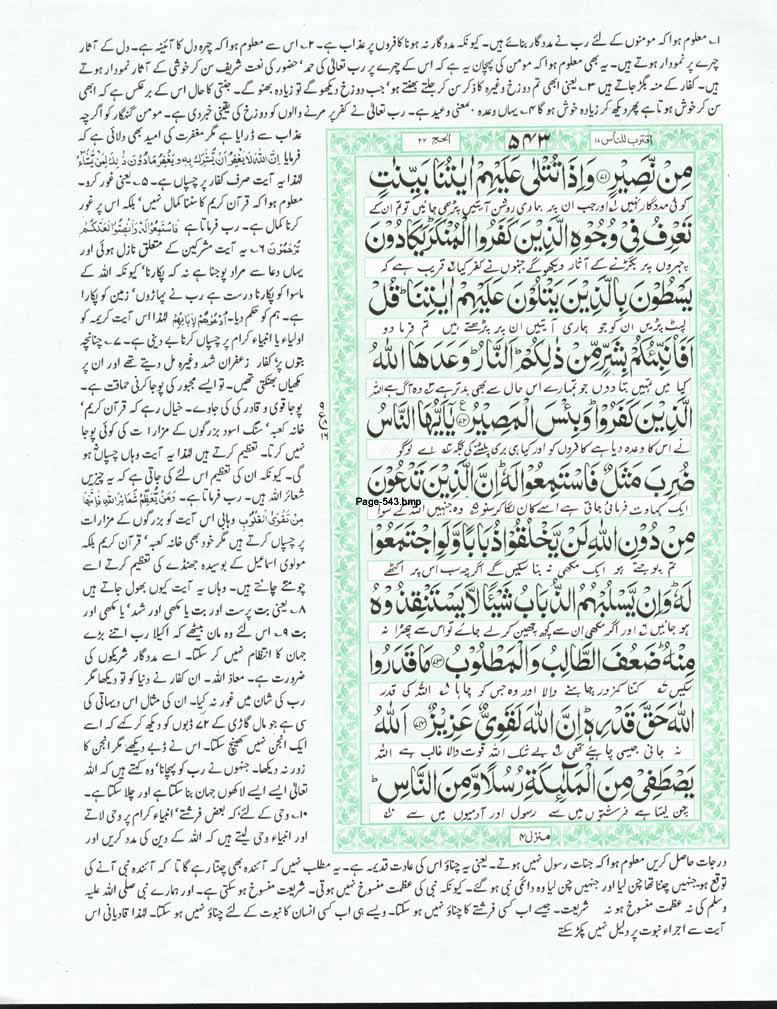 ۱؎ معلوم ہوا کہ مومنوں کے لئے رب نے مددگار بنائے ہیں۔ کیونکہ مددگار نہ ہونا کافروں پر عذاب ہے۔ ۲؎ اس سے معلوم ہوا کہ چہرہ دل کا آئینہ ہے۔ دل کے آثار
چہرے پر نمودار ہوتے ہیں۔ یہ بھی معلوم ہوا کہ مومن کی پہچان یہ ہے کہ اس کے چہرے پر رب تعالٰی کی حمد' حضور کی نعت شریف سن کر خوشی کے آثار نمودار ہوتے
ہیں۔ کفار کے منہ بگڑ جاتے ہیں ۳؎ یعنی ابھی تم دوزخ وغیرہ کا ذکر سن کر جلتے بھنتے ہو' جب دوزخ دیکھو گے تو زیادہ بھنو گے۔ جنتی کا حال اس کے برعکس ہے کہ ابھی
سن کر خوش ہوتا ہے پھر دیکھ کر زیادہ خوش ہو گا ۴؎ یہاں وعدہ بمعنی وعید ہے۔ رب تعالٰی نے کفر پر مرنے والوں کو دوزخ کی یقینی خبر دی ہے۔ مومن گنہگار کو اگرچہ
عذاب سے ڈرایا ہے مگر مغفرت کی امید بھی دلائی ہے کہ
فرمایا اِنَّ اللّٰهَ لَا یَغْفِرُ اَنْ یُّشْرَكَ بِهٖ وَ یَغْفِرُ مَا دُوْنَ ذٰلِكَ لِمَنْ یَّشَآءُ
لہٰذا یہ آیت صرف کفار پر چسپاں ہے۔ ۵؎ یعنی غور کرو۔
معلوم ہوا کہ قرآن کریم کا سننا کمال نہیں' بلکہ اس پر غور
کرنا کمال ہے۔ رب فرماتا ہے فَاسْتَمِعُوْا لَهٗ وَ اَنْصِتُوْا لَعَلَّكُمْ
تُرْحَمُوْنَ ۶؎ یہ آیت مشرکین کے متعلق نازل ہوئی اور
یہاں دعا سے مراد پوجنا ہے نہ کہ پکارنا' کیونکہ اللہ کے
ماسوا کو پکارنا درست ہے رب نے پہاڑوں' زمین کو پکارا
ہے۔ ہم کو حکم دیا۔ اُدْعُوْهُمْ لِاٰبَآئِهِمْ لہٰذا اس آیت کریمہ کو
اولیاء یا انبیاء کرام پر چسپاں کرنا بے دینی ہے۔ ۷؎ چنانچہ
بتوں پر' کفار زعفران شہد وغیرہ مل دیتے تھے اور ان پر
مکھیاں بھنکتی تھیں۔ تو ایسے مجبور کی پوجا کرنی حماقت ہے۔
پوجا قوی و قادر کی کی جاوے۔ خیال رہے کہ قرآن کریم'
خانہ کعبہ' سنگ اسود بزرگوں کے مزارات کی کوئی پوجا
نہیں کرتا۔ تعظیم کرتے ہیں لہٰذا یہ آیت وہاں چسپاں نہ ہو
گی۔ کیونکہ ان کی تعظیم اس لئے کی جاتی ہے کہ یہ چیزیں
شعائر اللہ ہیں۔ رب فرماتا ہے۔ وَمَنْ یُّعَظِّمْ شَعَآئِرَ اللّٰهِ فَاِنَّهَا
مِنْ تَقْوَی الْقُلُوْبِ وہابی اس آیت کو بزرگوں کے مزارات
پر چسپاں کرتے ہیں مگر خود بھی خانہ کعبہ' قرآن کریم بلکہ
مولوی اسماعیل کے بوسیدہ جھنڈے کی تعظیم کرتے اسے
چومتے چاٹتے ہیں۔ وہاں یہ آیت کیوں بھول جاتے ہیں
۸؎ یعنی بت پرست اور بت یا مکھی اور شہد' یا مکھی اور
بت ۹؎ اس لئے وہ مان بیٹھے کہ اکیلا رب اتنے بڑے
جہان کا انتظام نہیں کر سکتا۔ اسے مددگار شریکوں کی
ضرورت ہے۔ معاذ اللہ۔ ان کفار نے دنیا کو تو دیکھا مگر
رب کی شان میں غور نہ کیا۔ ان کی مثال اس دیہاتی کی
سی ہے جو مال گاڑی کے ۷۲ ڈبوں کو دیکھ کر کہے کہ اسے
ایک انجن نہیں کھینچ سکتا۔ اس نے ڈبے دیکھے مگر انجن کا
زور نہ دیکھا۔ جنہوں نے رب کو پہچانا' وہ کہتے ہیں کہ اللہ
تعالٰی ایسے ایسے لاکھوں جہان بنا سکتا ہے اور چلا سکتا ہے۔
۱۰؎ وحی کے لئے' کہ بعض فرشتے' انبیاء کرام پر وحی لاتے
اور انبیاء وحی لیتے ہیں کہ اللہ کے دین کی مدد کریں اور
اقترب للناس ۱۷
۵۴۳
الحج ۲۲
مِنْ نَّصِیْرٍ ﴿۷۱﴾ وَ اِذَا تُتْلٰی عَلَیْهِمْ اٰیٰتُنَا بَیِّنٰتٍ
کوئی مددگار نہیں ۱؎ اور جب ان پر ہماری روشن آیتیں پڑھی جائیں تو تم ان کے
تَعْرِفُ فِیْ وُجُوْهِ الَّذِیْنَ كَفَرُوا الْمُنْكَرَ ؕ یَكَادُوْنَ
چہروں پر بگڑنے کے آثار دیکھو گے جنہوں نے کفر کیا ۲؎ قریب ہے کہ
یَسْطُوْنَ بِالَّذِیْنَ یَتْلُوْنَ عَلَیْهِمْ اٰیٰتِنَا ؕ قُلْ
لپٹ پڑیں ان کو جو ہماری آیتیں ان پر پڑھتے ہیں تم فرما دو
اَفَاُنَبِّئُكُمْ بِشَرٍّ مِّنْ ذٰلِكُمْ ؕ اَلنَّارُ ؕ وَعَدَهَا اللّٰهُ
کیا میں تمہیں بتا دوں جو تمہارے اس حال سے بھی بدتر ہے ۳؎ وہ آگ ہے اللہ
الَّذِیْنَ كَفَرُوْا ؕ وَ بِئْسَ الْمَصِیْرُ ﴿۷۲﴾ یٰۤاَیُّهَا النَّاسُ
نے اس کا وعدہ دیا ہے کافروں کو اور کیا ہی بری پلٹنے کی جگہ ۴؎ اے لوگو
ضُرِبَ مَثَلٌ فَاسْتَمِعُوْا لَهٗ ؕ اِنَّ الَّذِیْنَ تَدْعُوْنَ
ایک کہاوت فرمائی جاتی ہے اسے کان لگا کر سنو ۵؎ وہ جنہیں اللہ کے سوا
Page-543.bmp
مِنْ دُوْنِ اللّٰهِ لَنْ یَّخْلُقُوْا ذُبَابًا وَّ لَوِ اجْتَمَعُوْا
تم پوجتے ہو ایک مکھی نہ بنا سکیں گے اگرچہ سب اس پر اکٹھے
لَهٗ ؕ وَ اِنْ یَّسْلُبْهُمُ الذُّبَابُ شَیْـًٔا لَّا یَسْتَنْقِذُوْهُ
ہو جائیں ۶؎ اور اگر مکھی ان سے کچھ چھین کر لے جائے تو اس سے چھڑا نہ
مِنْهُ ؕ ضَعُفَ الطَّالِبُ وَ الْمَطْلُوْبُ ﴿۷۳﴾ مَا قَدَرُوا
سکیں ۷؎ کتنا کمزور چاہنے والا اور وہ جس کو چاہا ۸؎ اللہ کی قدر
اللّٰهَ حَقَّ قَدْرِهٖ ؕ اِنَّ اللّٰهَ لَقَوِیٌّ عَزِیْزٌ ﴿۷۴﴾ اَللّٰهُ
نہ جانی جیسی چاہیے تھی ۹؎ بے شک اللہ قوت والا غالب ہے اللہ
یَصْطَفِیْ مِنَ الْمَلٰٓئِكَةِ رُسُلًا وَّ مِنَ النَّاسِ ؕ
چن لیتا ہے فرشتوں میں سے رسول اور آدمیوں میں سے ۱۰؎
منزل ۴
درجات حاصل کریں معلوم ہوا کہ جنات رسول نہیں ہوتے۔ یعنی یہ چناؤ اس کی عادت قدیمہ ہے۔ یہ مطلب نہیں کہ آئندہ بھی چنتا رہے گا تا کہ آئندہ نبی آنے کی
توقع ہو جنہیں چننا تھا چن لیا اور جنہیں چن لیا وہ دائمی نبی ہو گئے۔ کیونکہ نبی کی عظمت منسوخ نہیں ہوتی۔ شریعت منسوخ ہو سکتی ہے۔ اور ہمارے نبی صلی اللہ علیہ
وسلم کی نہ عظمت منسوخ ہو نہ شریعت۔ جیسے اب کسی فرشتے کا چناؤ نہیں ہو سکتا۔ ویسے ہی اب کسی انسان کا نبوت کے لئے چناؤ نہیں ہو سکتا۔ لہٰذا قادیانی اس
آیت سے اجراء نبوت پر دلیل نہیں پکڑ سکتے